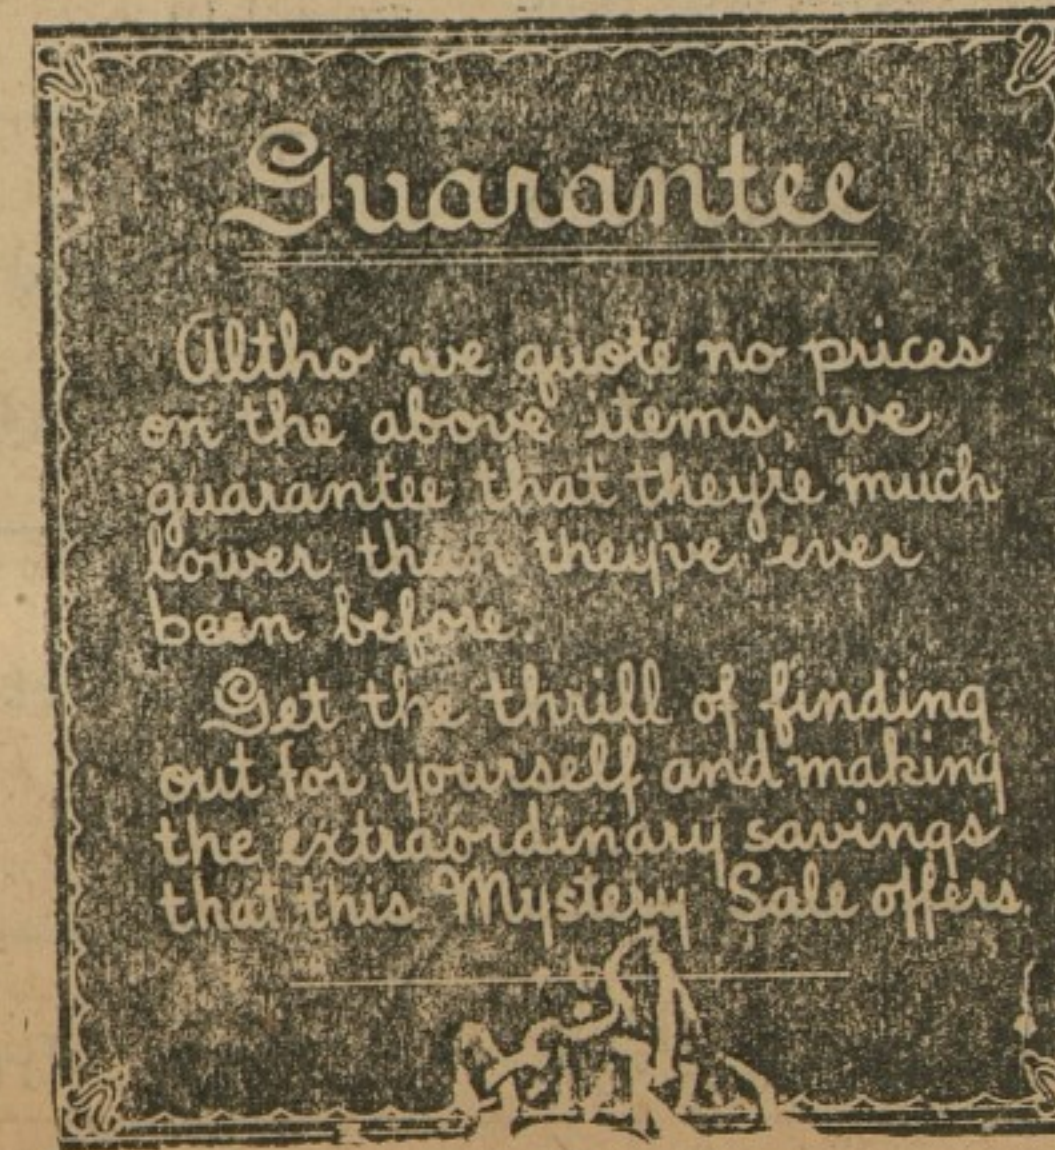 Guarantee
Altho we quote no prices
on the above items, we
guarantee that they're much
lower than they've ever
been before.
Get the thrill of finding
out for yourself and making
the extraordinary savings
that this Mystery Sale offers.